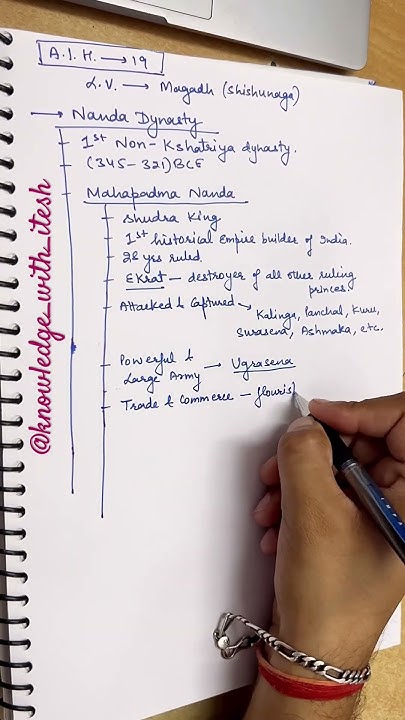 A.I.H. → 19
L.V. → Magadh (Shishunaga)
→ Nanda Dynasty
- 1st Non-Kshatriya dynasty.
- (345-321) BCE
- Mahapadma Nanda
- Shudra King
- 1st historical empire builder of India.
- 28 yrs ruled.
- EKrat - destroyer of all other ruling
princes.
- Attacked & Captured → Kalinga, Panchal, Kuru,
Surasena, Ashmaka, etc.
- Powerful &
Large Army → Ugrasena
- Trade & Commerce - flouris
@knowledge_with_itesh